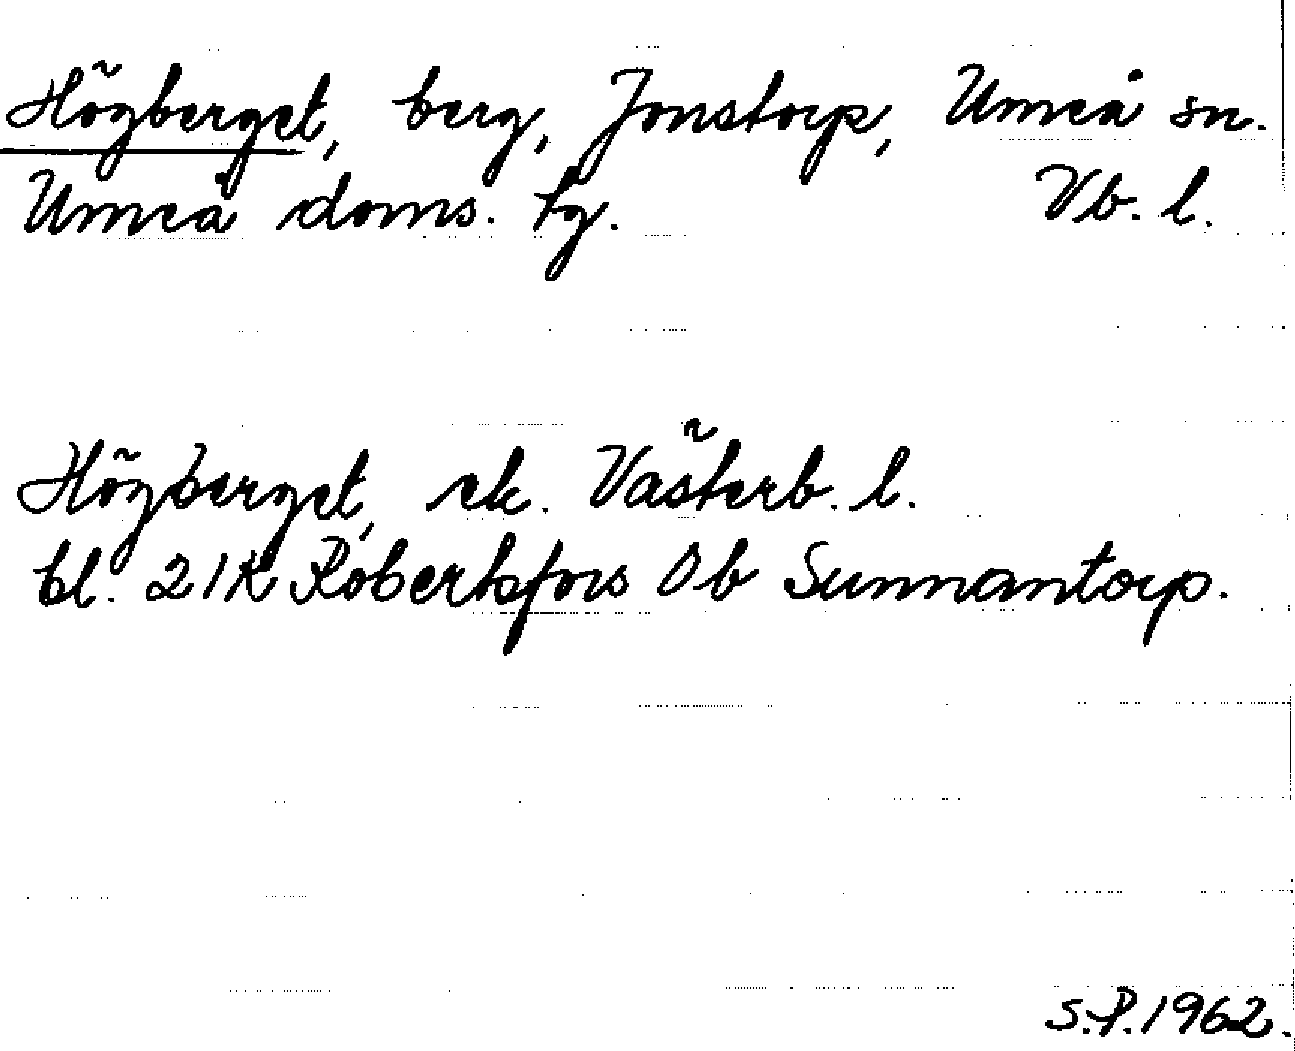 Högberget, berg, Jonstorp, Umeå sn.
Umeå doms. tg. Vb. l.
Högberget, ek. Västerb. l.
bl. 21K Robertsfors Ob Sunnantorp.
S.P. 1962.